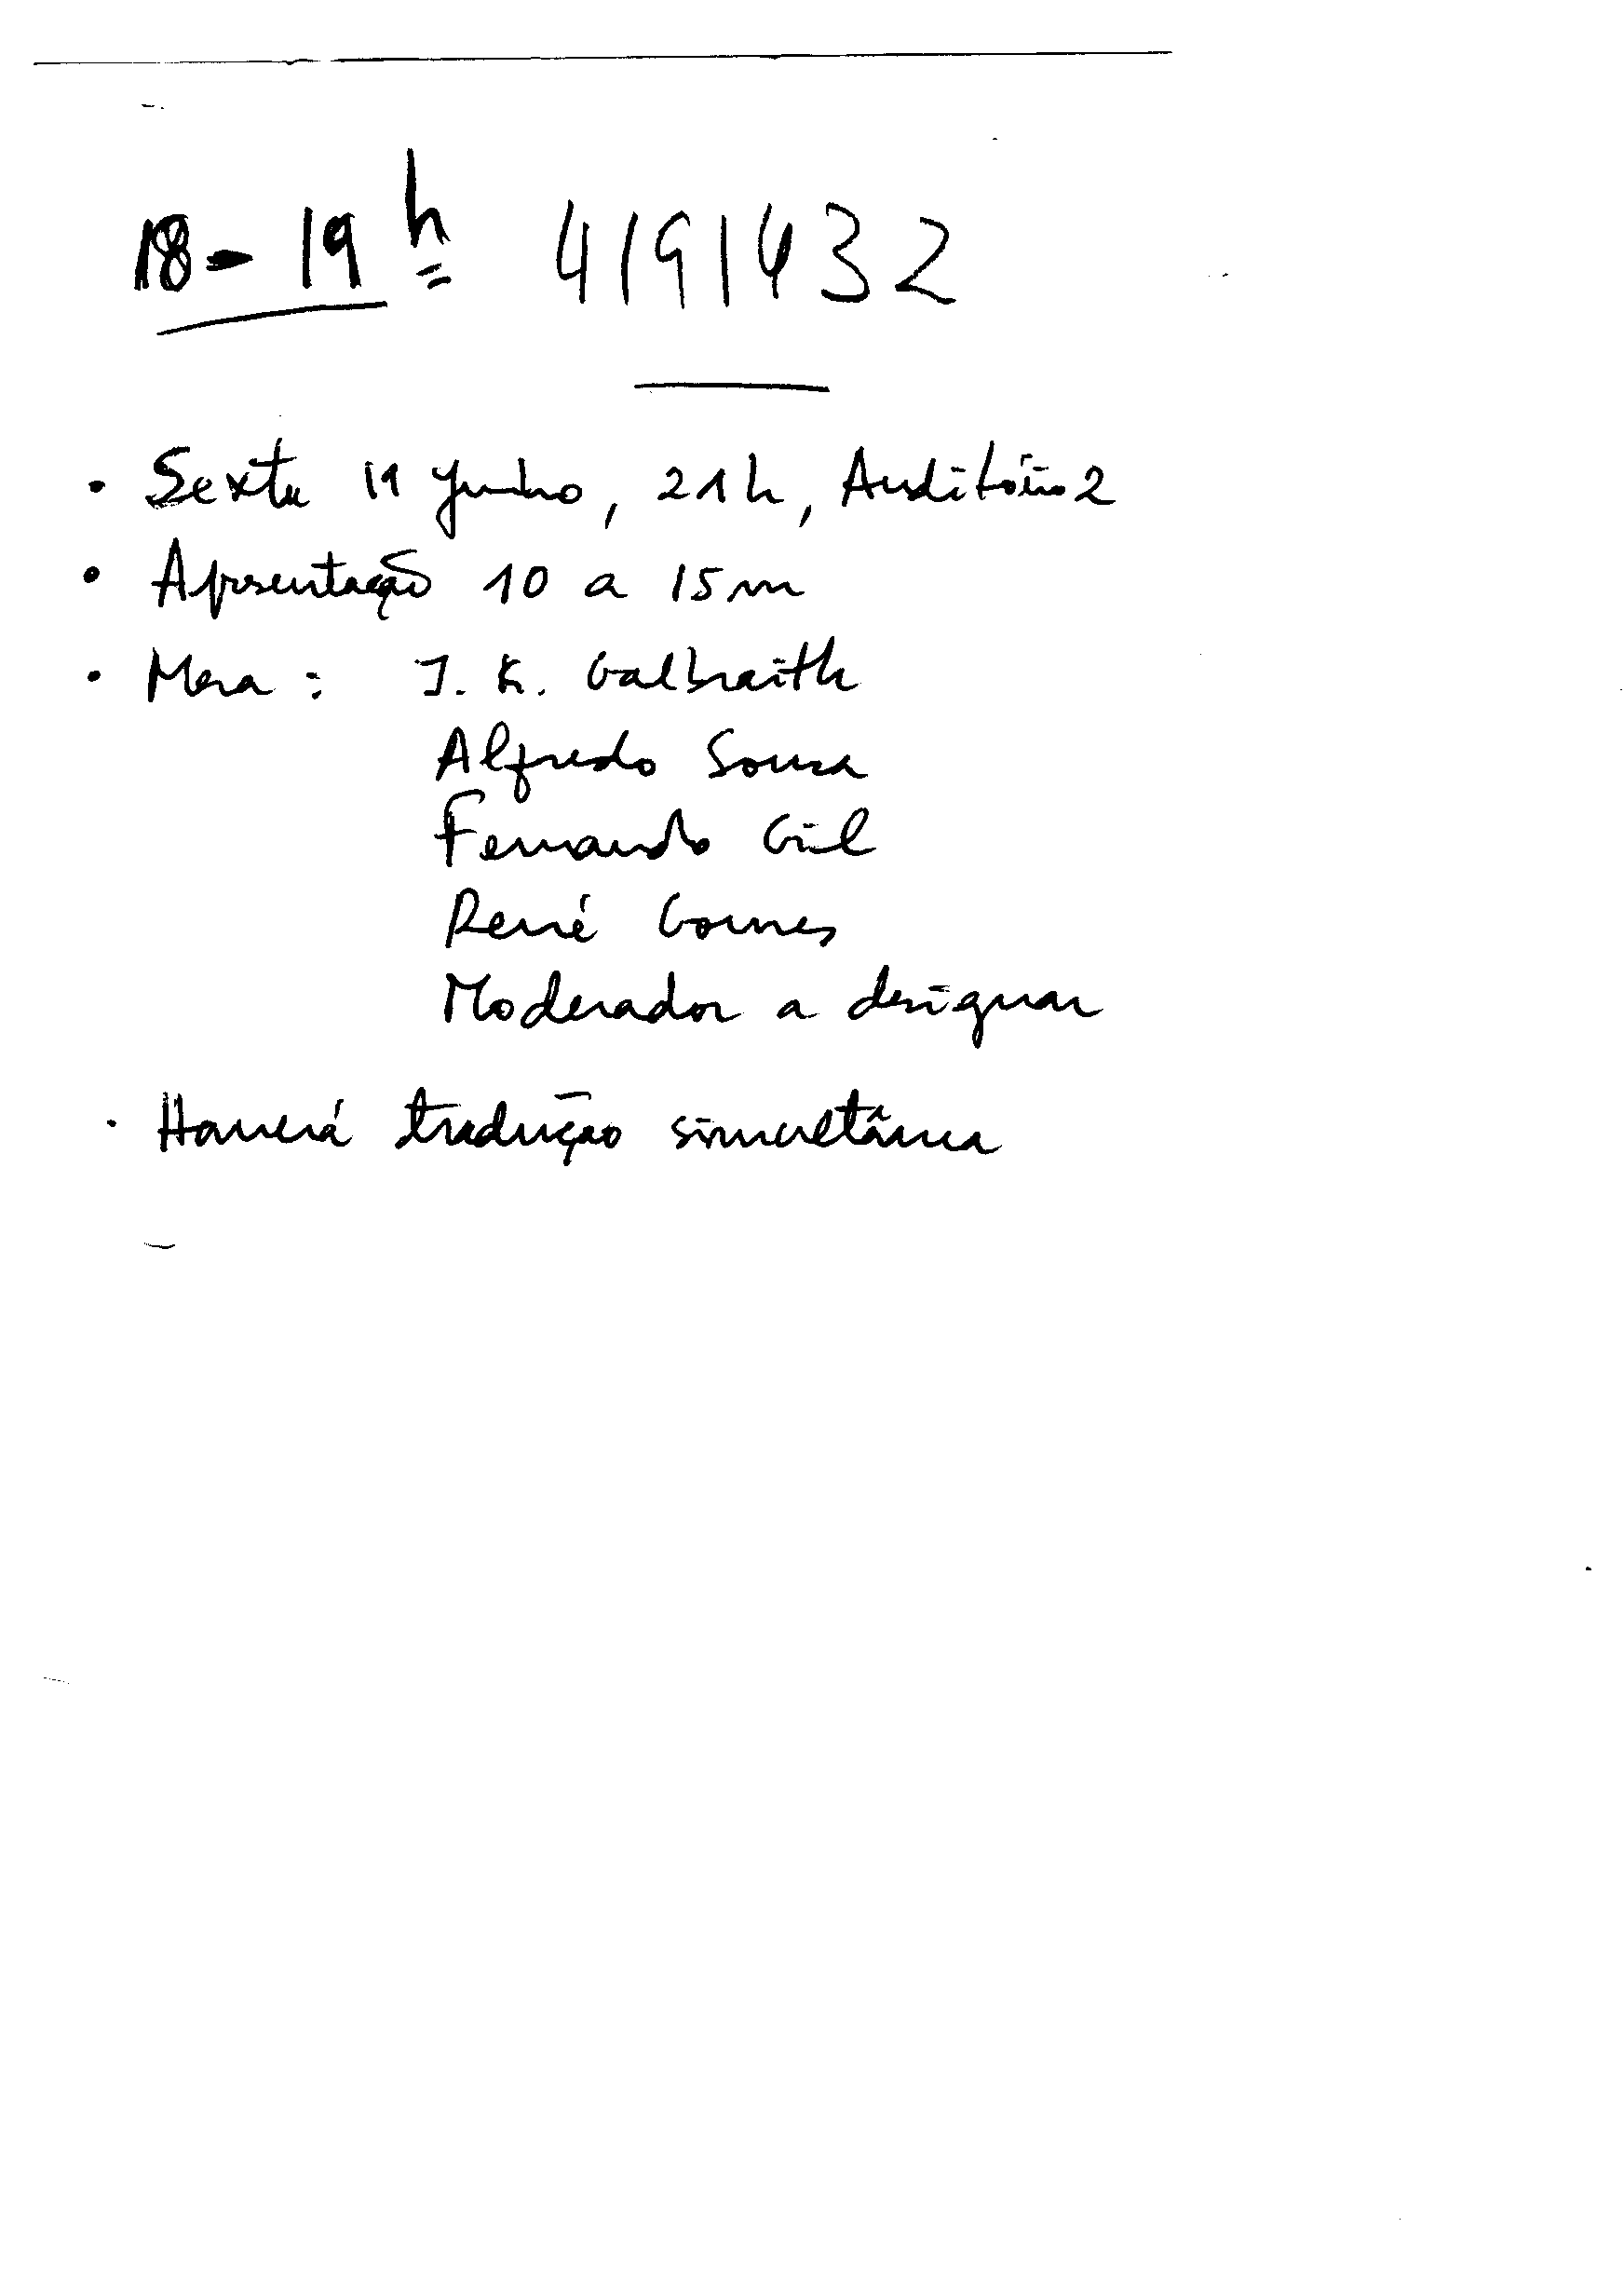 18 - 19h 4191432
• Sexta 19 Junho, 21h, Auditório 2
• Apresentação 10 a 15m
• Mesa : J. K. Galbraith
Alfredo Sousa
Fernando Gil
René Gomes
Moderador a designar
• Haverá tradução simultânea